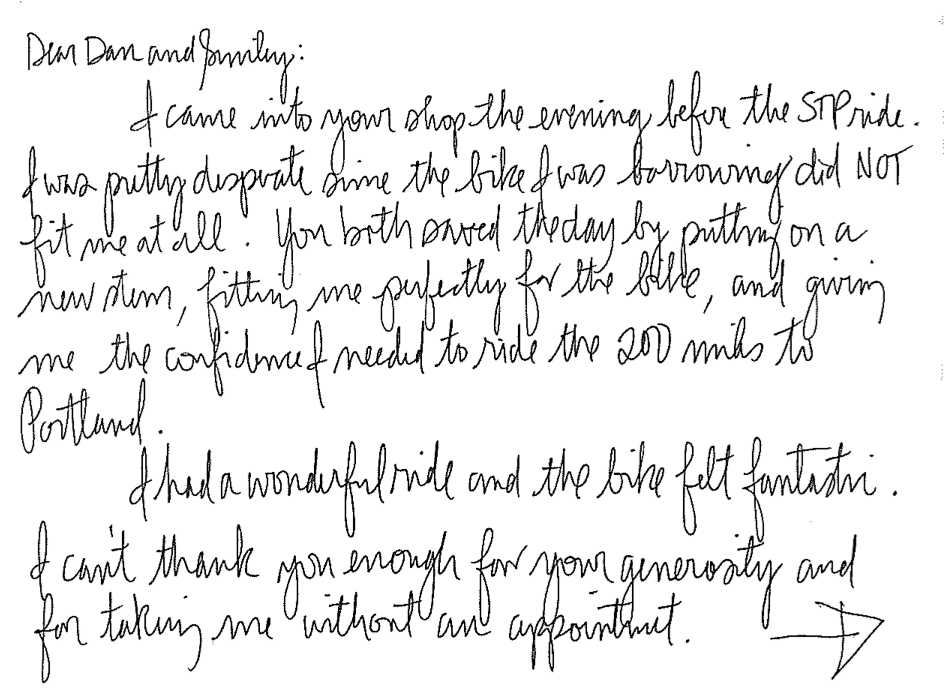 Dear Dan and Smiley:
I came into your shop the evening before the STP ride.
I was pretty desperate since the bike I was borrowing did NOT
fit me at all. You both saved the day by putting on a
new stem, fitting me perfectly for the bike, and giving
me the confidence I needed to ride the 200 miles to
Portland.
I had a wonderful ride and the bike felt fantastic.
I can't thank you enough for your generosity and
for taking me without an appointment.